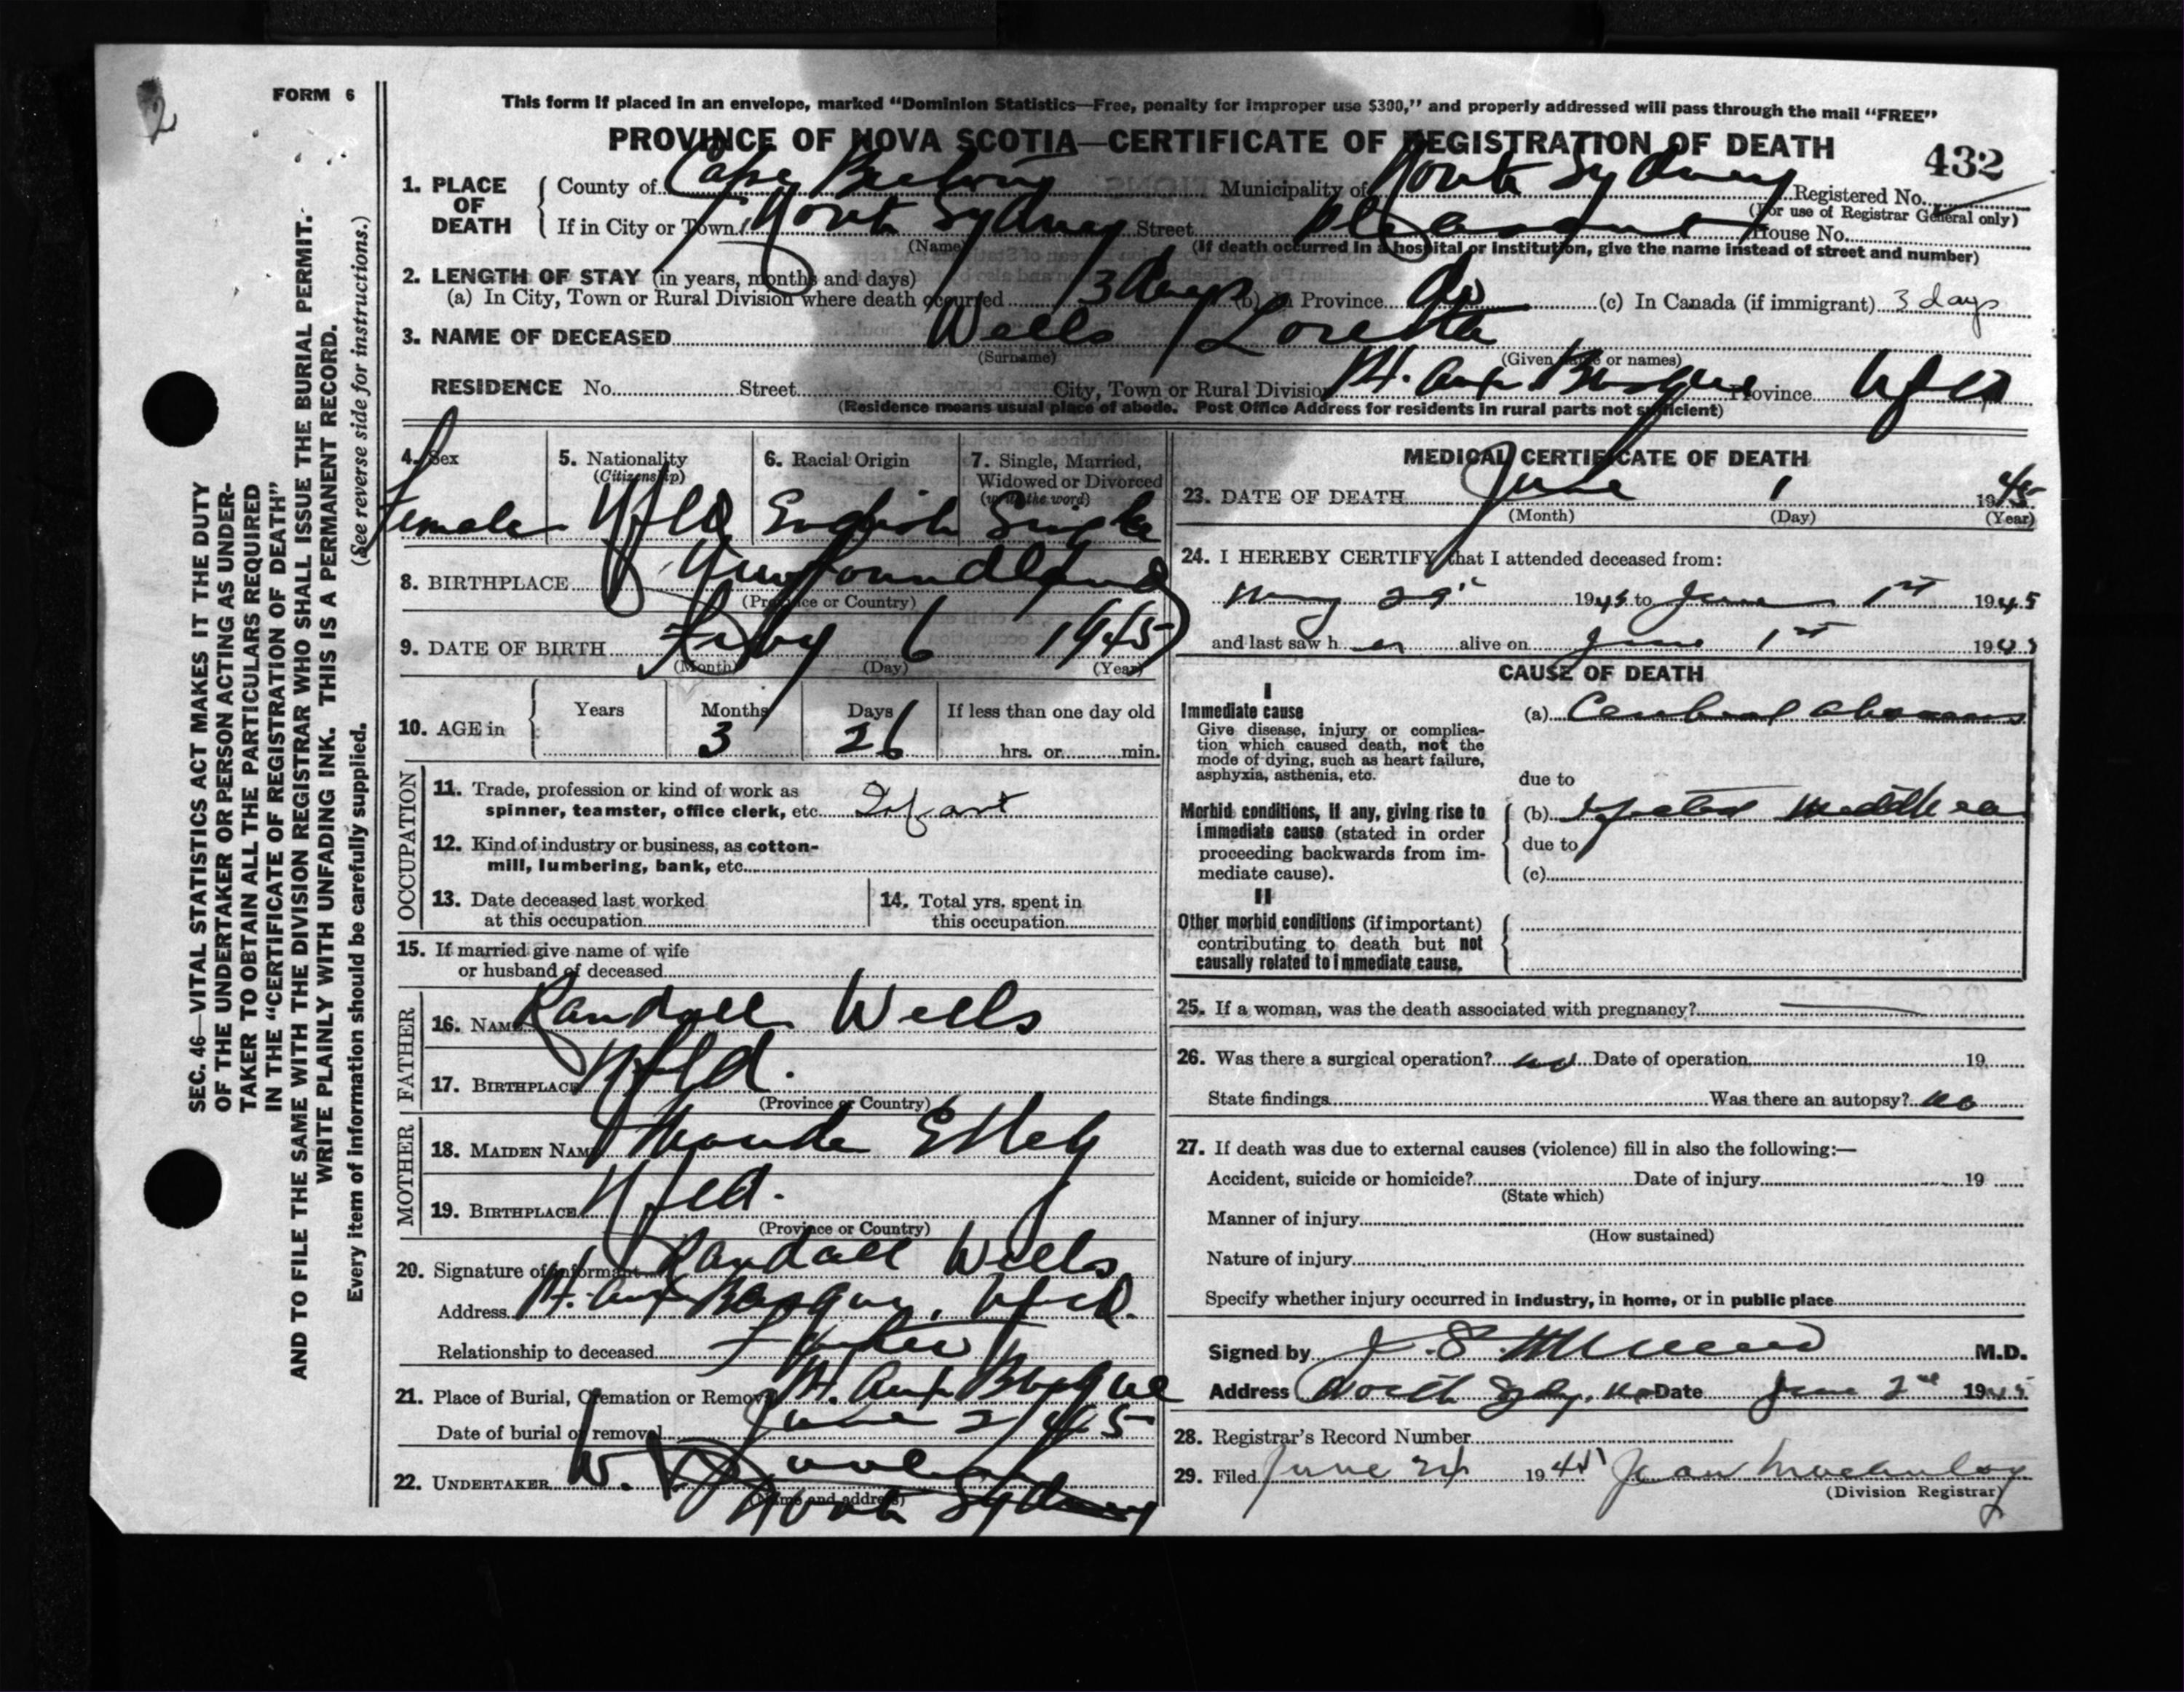 2
FORM 6
This form if placed in an envelope, marked "Dominion Statistics—Free, penalty for improper use $300," and properly addressed will pass through the mail "FREE"
PROVINCE OF NOVA SCOTIA—CERTIFICATE OF REGISTRATION OF DEATH
432
1. PLACE OF DEATH
County of Cape Breton Municipality of North Sydney Registered No.
(For use of Registrar General only)
If in City or Town North Sydney Street Pleasant House No.
(Name) (If death occurred in a hospital or institution, give the name instead of street and number)
2. LENGTH OF STAY (in years, months and days)
(a) In City, Town or Rural Division where death occurred 3 days (b) In Province do (c) In Canada (if immigrant) 3 days
3. NAME OF DECEASED Wells Loretta
(Surname) (Given name or names)
RESIDENCE No. Street City, Town or Rural Division Pt. Aux Basque Province Nfld
(Residence means usual place of abode. Post Office Address for residents in rural parts not sufficient)
4. Sex
Female
5. Nationality
(Citizenship)
Nfld
6. Racial Origin
English
7. Single, Married, Widowed or Divorced
(write the word)
Single
8. BIRTHPLACE Newfoundland
(Province or Country)
9. DATE OF BIRTH Feby 6 1945
(Month) (Day) (Year)
10. AGE in Years Months Days If less than one day old
3 26 hrs. or min.
OCCUPATION
11. Trade, profession or kind of work as
spinner, teamster, office clerk, etc. Infant
12. Kind of industry or business, as cotton-
mill, lumbering, bank, etc.
13. Date deceased last worked
at this occupation
14. Total yrs. spent in
this occupation
15. If married give name of wife
or husband of deceased
FATHER
16. NAME Randall Wells
17. BIRTHPLACE Nfld.
(Province or Country)
MOTHER
18. MAIDEN NAME
19. BIRTHPLACE Nfld.
(Province or Country)
20. Signature of informant Randall Wells
Address Pt. Aux Basque, Nfld.
Relationship to deceased Father
21. Place of Burial, Cremation or Removal Pt. Aux Basque
Date of burial or removal June 2/45
22. UNDERTAKER W.
(Name and address)
North Sydney
MEDICAL CERTIFICATE OF DEATH
23. DATE OF DEATH June 1 1945
(Month) (Day) (Year)
24. I HEREBY CERTIFY that I attended deceased from:
May 29 1945 to June 1st 1945
and last saw her alive on June 1st 1945
CAUSE OF DEATH
I
Immediate cause
Give disease, injury or complica-
tion which caused death, not the
mode of dying, such as heart failure,
asphyxia, asthenia, etc.
(a) Cerebral abscess
due to
Morbid conditions, if any, giving rise to
immediate cause (stated in order
proceeding backwards from im-
mediate cause).
(b) Infected middle ear
due to
(c)
II
Other morbid conditions (if important)
contributing to death but not
causally related to immediate cause.
25. If a woman, was the death associated with pregnancy?
26. Was there a surgical operation? no Date of operation 19
State findings Was there an autopsy? no
27. If death was due to external causes (violence) fill in also the following:—
Accident, suicide or homicide? Date of injury 19
(State which)
Manner of injury
(How sustained)
Nature of injury
Specify whether injury occurred in industry, in home, or in public place
Signed by M.D.
Address North Sydney, N.S. Date June 2nd 1945
28. Registrar's Record Number
29. Filed June 1945 Jean
(Division Registrar)
SEC. 46—VITAL STATISTICS ACT MAKES IT THE DUTY
OF THE UNDERTAKER OR PERSON ACTING AS UNDER-
TAKER TO OBTAIN ALL THE PARTICULARS REQUIRED
IN THE "CERTIFICATE OF REGISTRATION OF DEATH"
AND TO FILE THE SAME WITH THE DIVISION REGISTRAR WHO SHALL ISSUE THE BURIAL PERMIT.
WRITE PLAINLY WITH UNFADING INK. THIS IS A PERMANENT RECORD.
Every item of information should be carefully supplied. (See reverse side for instructions.)